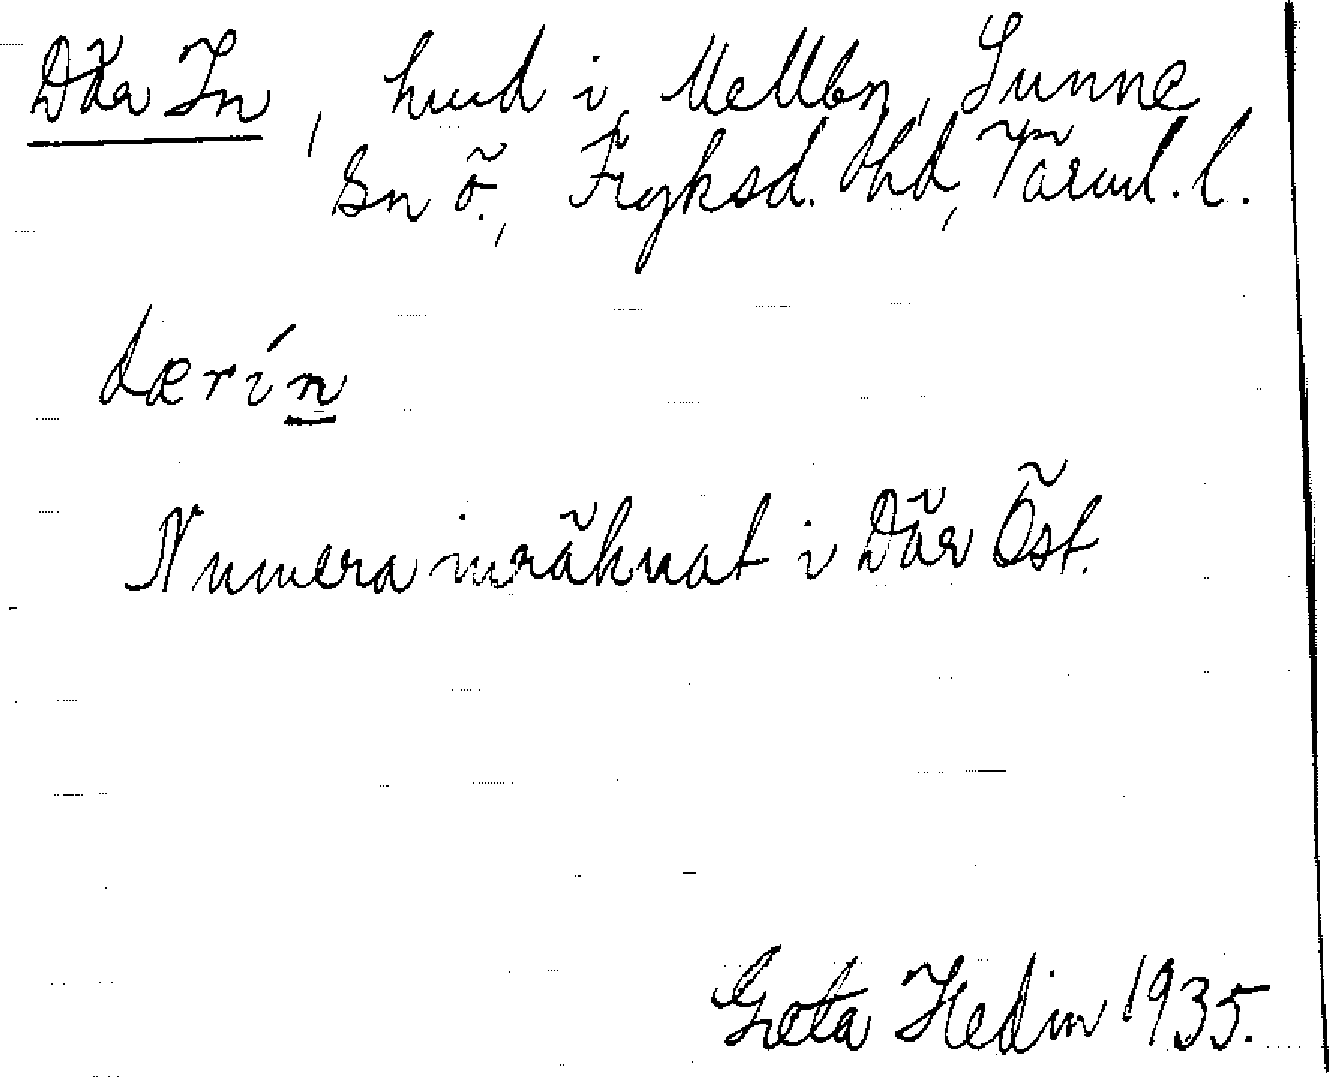 Där In, hmd i Mellbn, Sunne
sn ö., Fryksd. hd, Värml. l.
dærín
Numera inräknat i Där Öst.
Greta Hedin 1935.